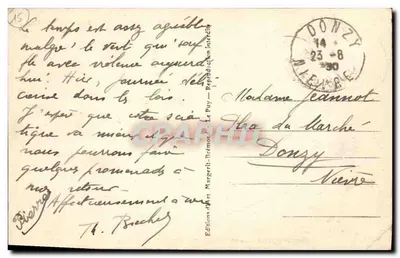 15
Le temps est assez agréable
malgré le vent qui souf
fle avec violence aujourd
hui. Hier, journée déli
cieuse dans les bois.
J'espère que votre scia
tique va mieux et que
nous pourrons faire
quelques promenades à
mon retour.
Affectueusement à vous
Pierre
Th. Brochet
Editions d'Art Margerit-Brémond - Le Puy - Reproduction Interdite
DONZY
14
23-8
30
NIEVRE
Madame Jeannot
du Marché
Donzy
Nièvre